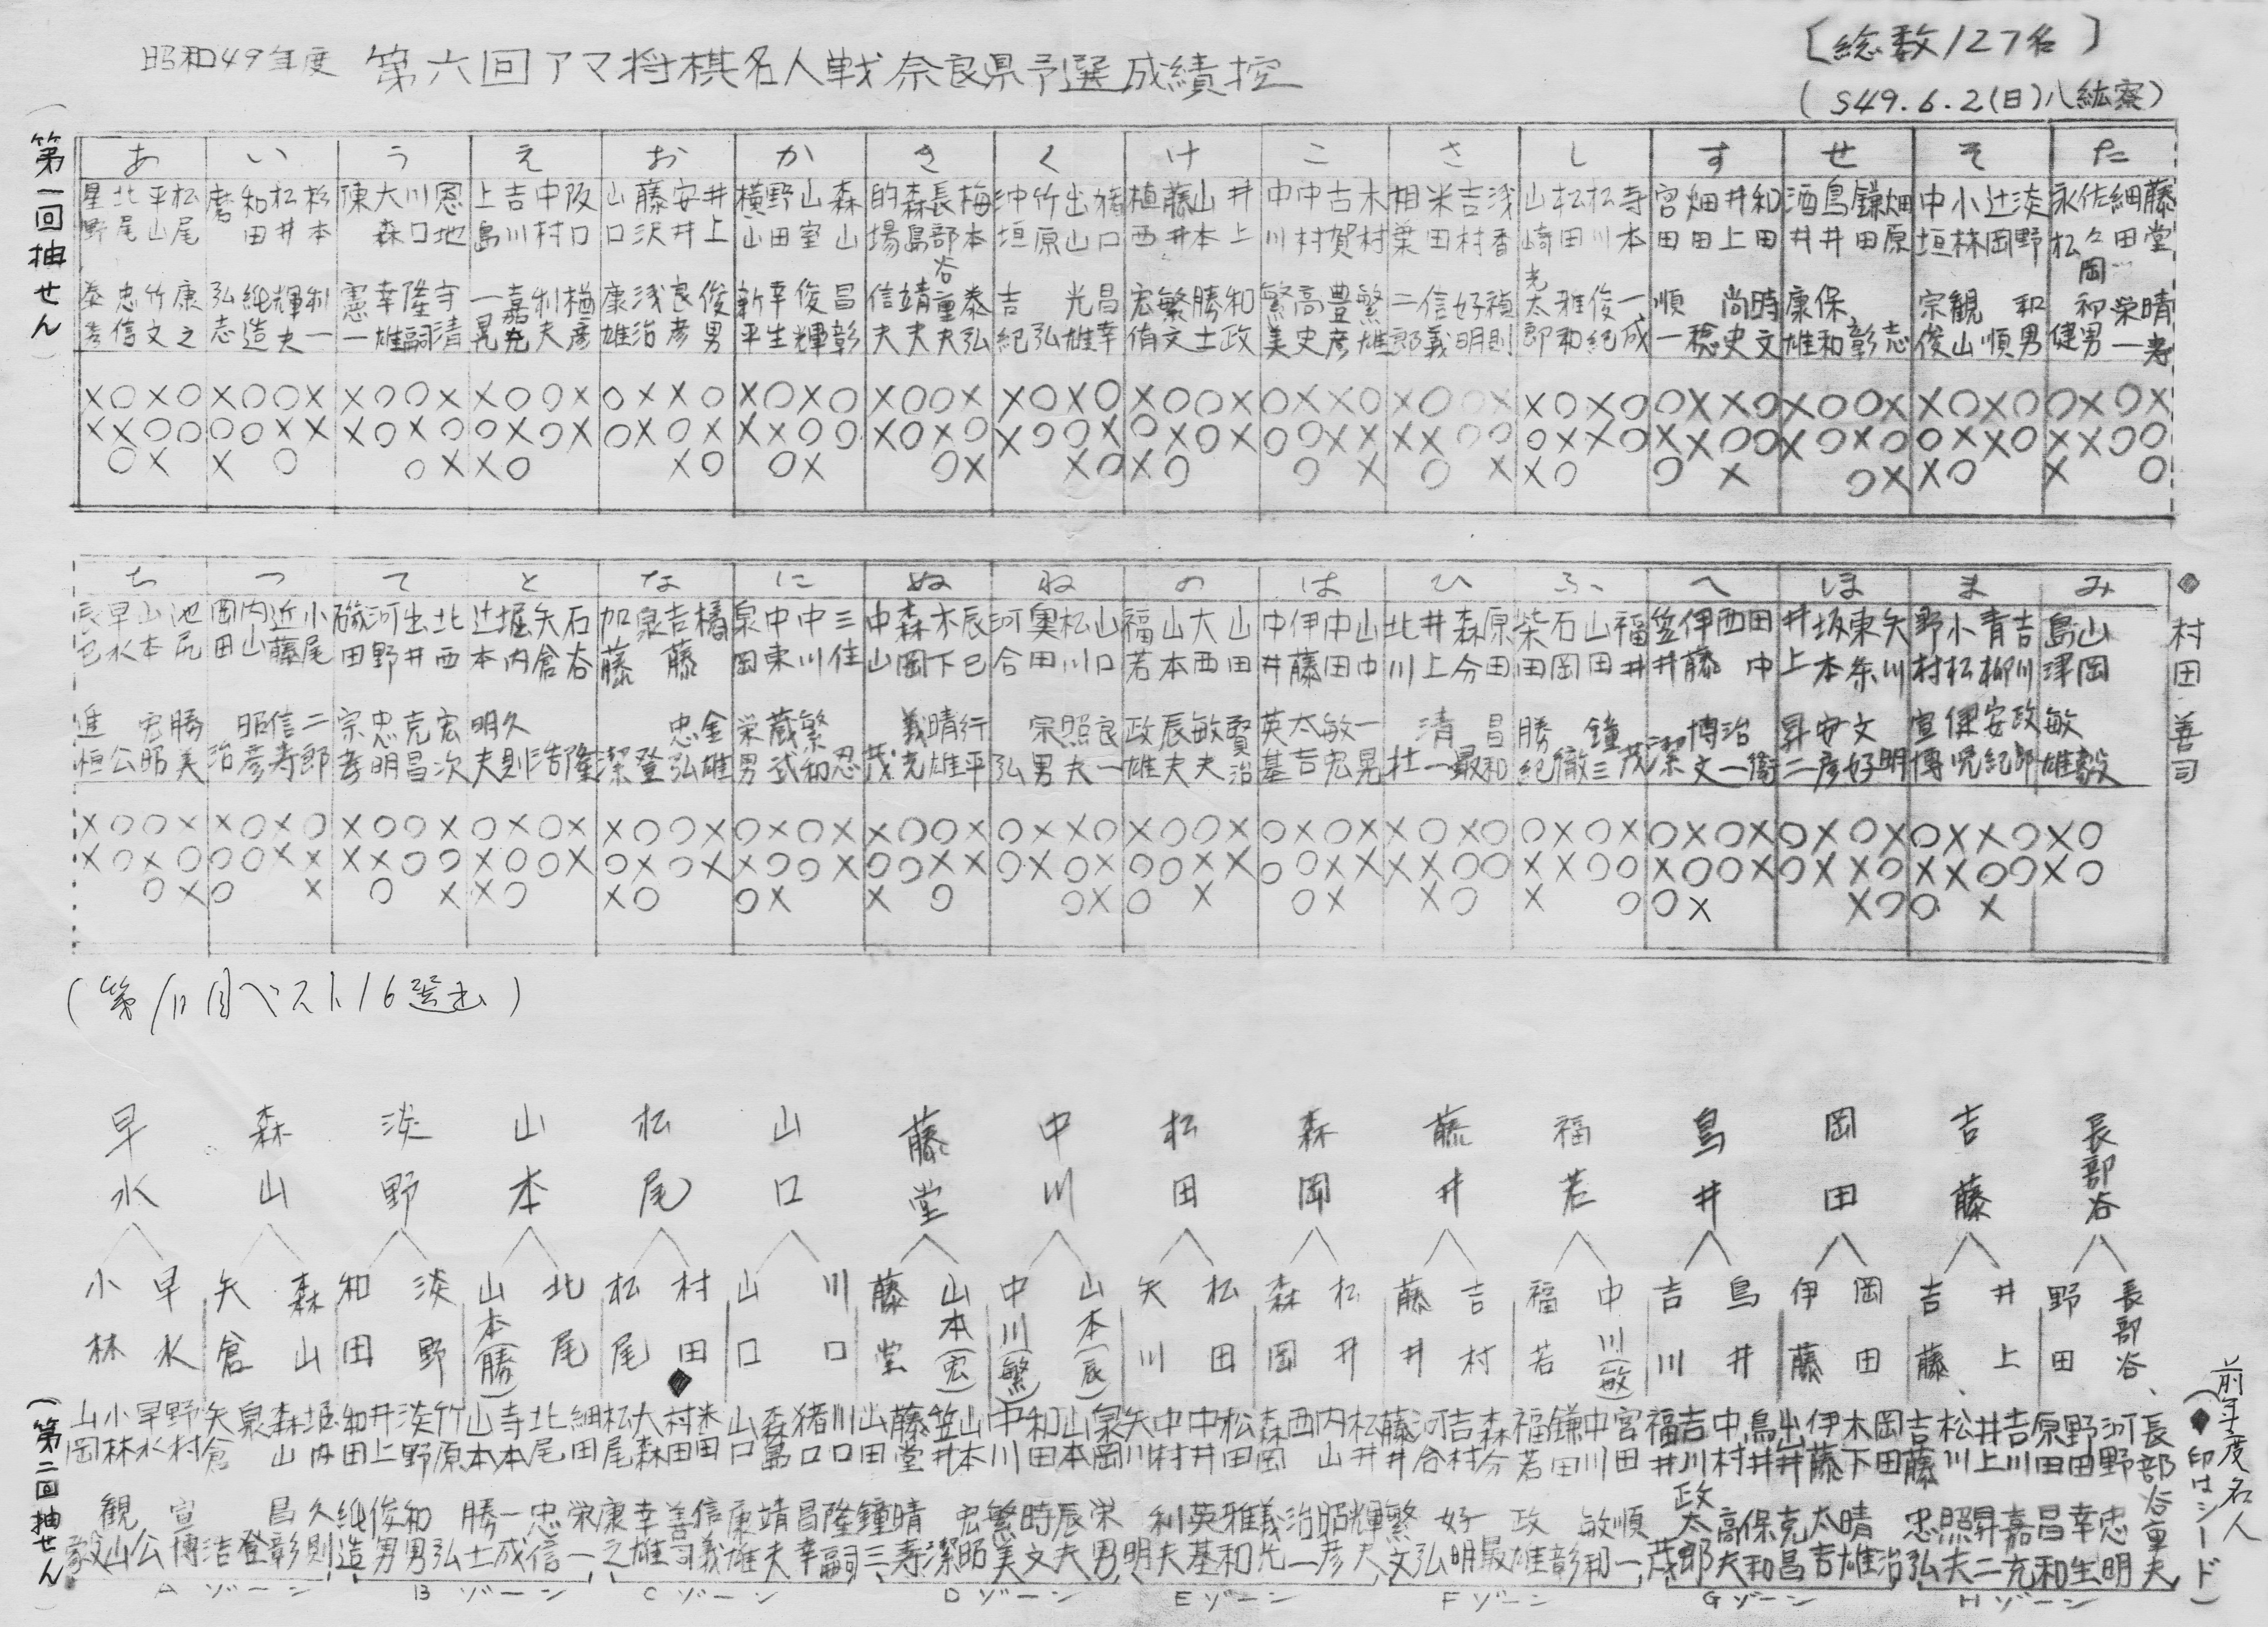 昭和49年度 第六回アマ将棋名人戦奈良県予選成績控
〔総数127名〕
(S49.6.2(日)八紘寮)
(第一回抽せん)
あ
星野
北尾忠信
平山竹文
松尾康之
い
磨 弘志
和田純造
松井輝夫
杉本利一
う
陳 憲一
大森幸雄
川口隆嗣
恩地守清
え
上島一晃
吉川嘉充
中村利夫
阪口楢彦
お
山口康雄
藤沢浅治
安井良彦
井上俊男
か
横山新平
野田幸生
山室俊輝
森山昌彰
き
的場信夫
森島靖夫
長部谷重夫
梅本泰弘
く
沖垣吉紀
竹原弘
出山光雄
猪口昌幸
け
植西宏侑
藤井繁文
山本勝士
井上和政
こ
中川繁美
中村高史
古賀豊彦
木村繁雄
さ
相葉二郎
米田信義
吉村好明
浅香禎則
し
山崎光太郎
松田雅和
松川俊紀
寺本一成
す
宮田順一
畑田稔
井上尚史
和田時文
せ
酒井康雄
鳥井保和
鎌田彰
畑原志
そ
中垣宗俊
小林観山
辻岡順
淡野和男
た
永松健
佐久岡和男
細田栄一
藤堂晴寿
×○×○ ×○○× ×○○× ×○○× ○××○ ×○×○ ×○○× ×○×○ ×○○× ○××○ ×○○× ×○×○ ○××○ ×○○× ×○×○ ○×○×
××○○ ○○×× ×○×○ ○×○× ○×○× ××○○ ×○×○ ×○○× ○×○× ○○×× ××○○ ○××○ ××○○ ×○×○ ○××○ ××○○
○× ×○ ○× ×○ ×○ ○× ○× ×○ ×○ ○× ○× ×○ ○× ○× ×○ ×○
ち
辰巳進恒
早水公
山本宏昭
池尻勝美
つ
岡田治
内山昭彦
近藤信寿
小尾二郎
て
磯田宗孝
河野忠明
出井克昌
北西宏次
と
辻本明夫
堀内久則
矢倉浩
石谷隆
な
加藤潔
泉 登
吉藤忠弘
橘 金雄
に
泉岡栄男
中東蔵弐
中川繁和
三住忍
ぬ
中山茂
森岡義光
木下晴雄
辰巳行平
ね
河合弘
奥田宗男
松川照夫
山口良一
の
福若政雄
山本辰夫
大西敏夫
山田賢治
は
中井英基
伊藤太吉
中田敏宏
山中一晃
ひ
北川壮
井上清一
森分最
原田昌和
ふ
柴田勝紀
石岡徹
山田鐘三
福井茂
へ
笠井潔
伊藤博文
西 治一
田中衛
ほ
井上昇二
坂本安彦
東条文好
矢川明
ま
野村宣博
小松健児
青柳安紀
吉川政郎
み
島津敏雄
山岡毅
◆
村田善司
×○○× ×○×○ ×○○× ○×○× ×○○× ○×○× ×○○× ○××○ ×○○× ○×○× ×○×○ ○×○× ○×○× ○×○× ○××○ ×○
×○×○ ○○×× ××○○ ×○○× ○×○× ×○○× ○○×× ○×○× ○○×× ○○×× ××○○ ××○○ ×○○× ○××○ ××○○ ×○
○× ○× ○× ×○ ×○ ○× ×○ ○× ○× ○× ×○ ×○ ○× ×○ ○×
(第1日目ベスト16選出)
早水
森山
淡野
山本
松尾
山口
藤堂
中川
松田
森岡
藤井
福若
鳥井
岡田
吉藤
長部谷
小林
早水
矢倉
森山
和田
淡野
山本(勝)
北尾
松尾
村田◆
山口
川口
藤堂
山本(宏)
中川(繁)
山本(辰)
矢川
松田
森岡
松井
藤井
吉村
福若
中川(敏)
吉川
鳥井
伊藤
岡田
吉藤
井上
野田
長部谷
(第二回抽せん)
山岡毅
小林観山
早水公
野村宣博
矢倉浩
泉 登
森山昌彰
堀内久則
和田純造
井上俊男
淡野和男
竹原弘
山本勝士
寺本一成
北尾忠信
細田栄一
松尾康之
大森幸雄
村田善司
米田信義
山口康雄
森島靖夫
猪口昌幸
川口隆嗣
山田鐘三
藤堂晴寿
笠井潔
山本宏昭
中川繁美
和田時文
山本辰夫
泉岡栄男
矢川明
中村利夫
中井英基
松田雅和
森岡義光
西 治一
内山昭彦
松井輝夫
藤井繁文
河合弘
吉村好明
森分最
福若政雄
鎌田彰
中川敏和
宮田順一
福井茂
吉川政太郎
中村高夫
鳥井保和
出井克昌
伊藤太吉
木下晴雄
岡田治
吉藤忠弘
松川照夫
井上昇二
吉川嘉充
原田昌和
野田幸生
河野忠明
長部谷重夫
Aゾーン
Bゾーン
Cゾーン
Dゾーン
Eゾーン
Fゾーン
Gゾーン
Hゾーン
前年度名人
(◆印はシード)